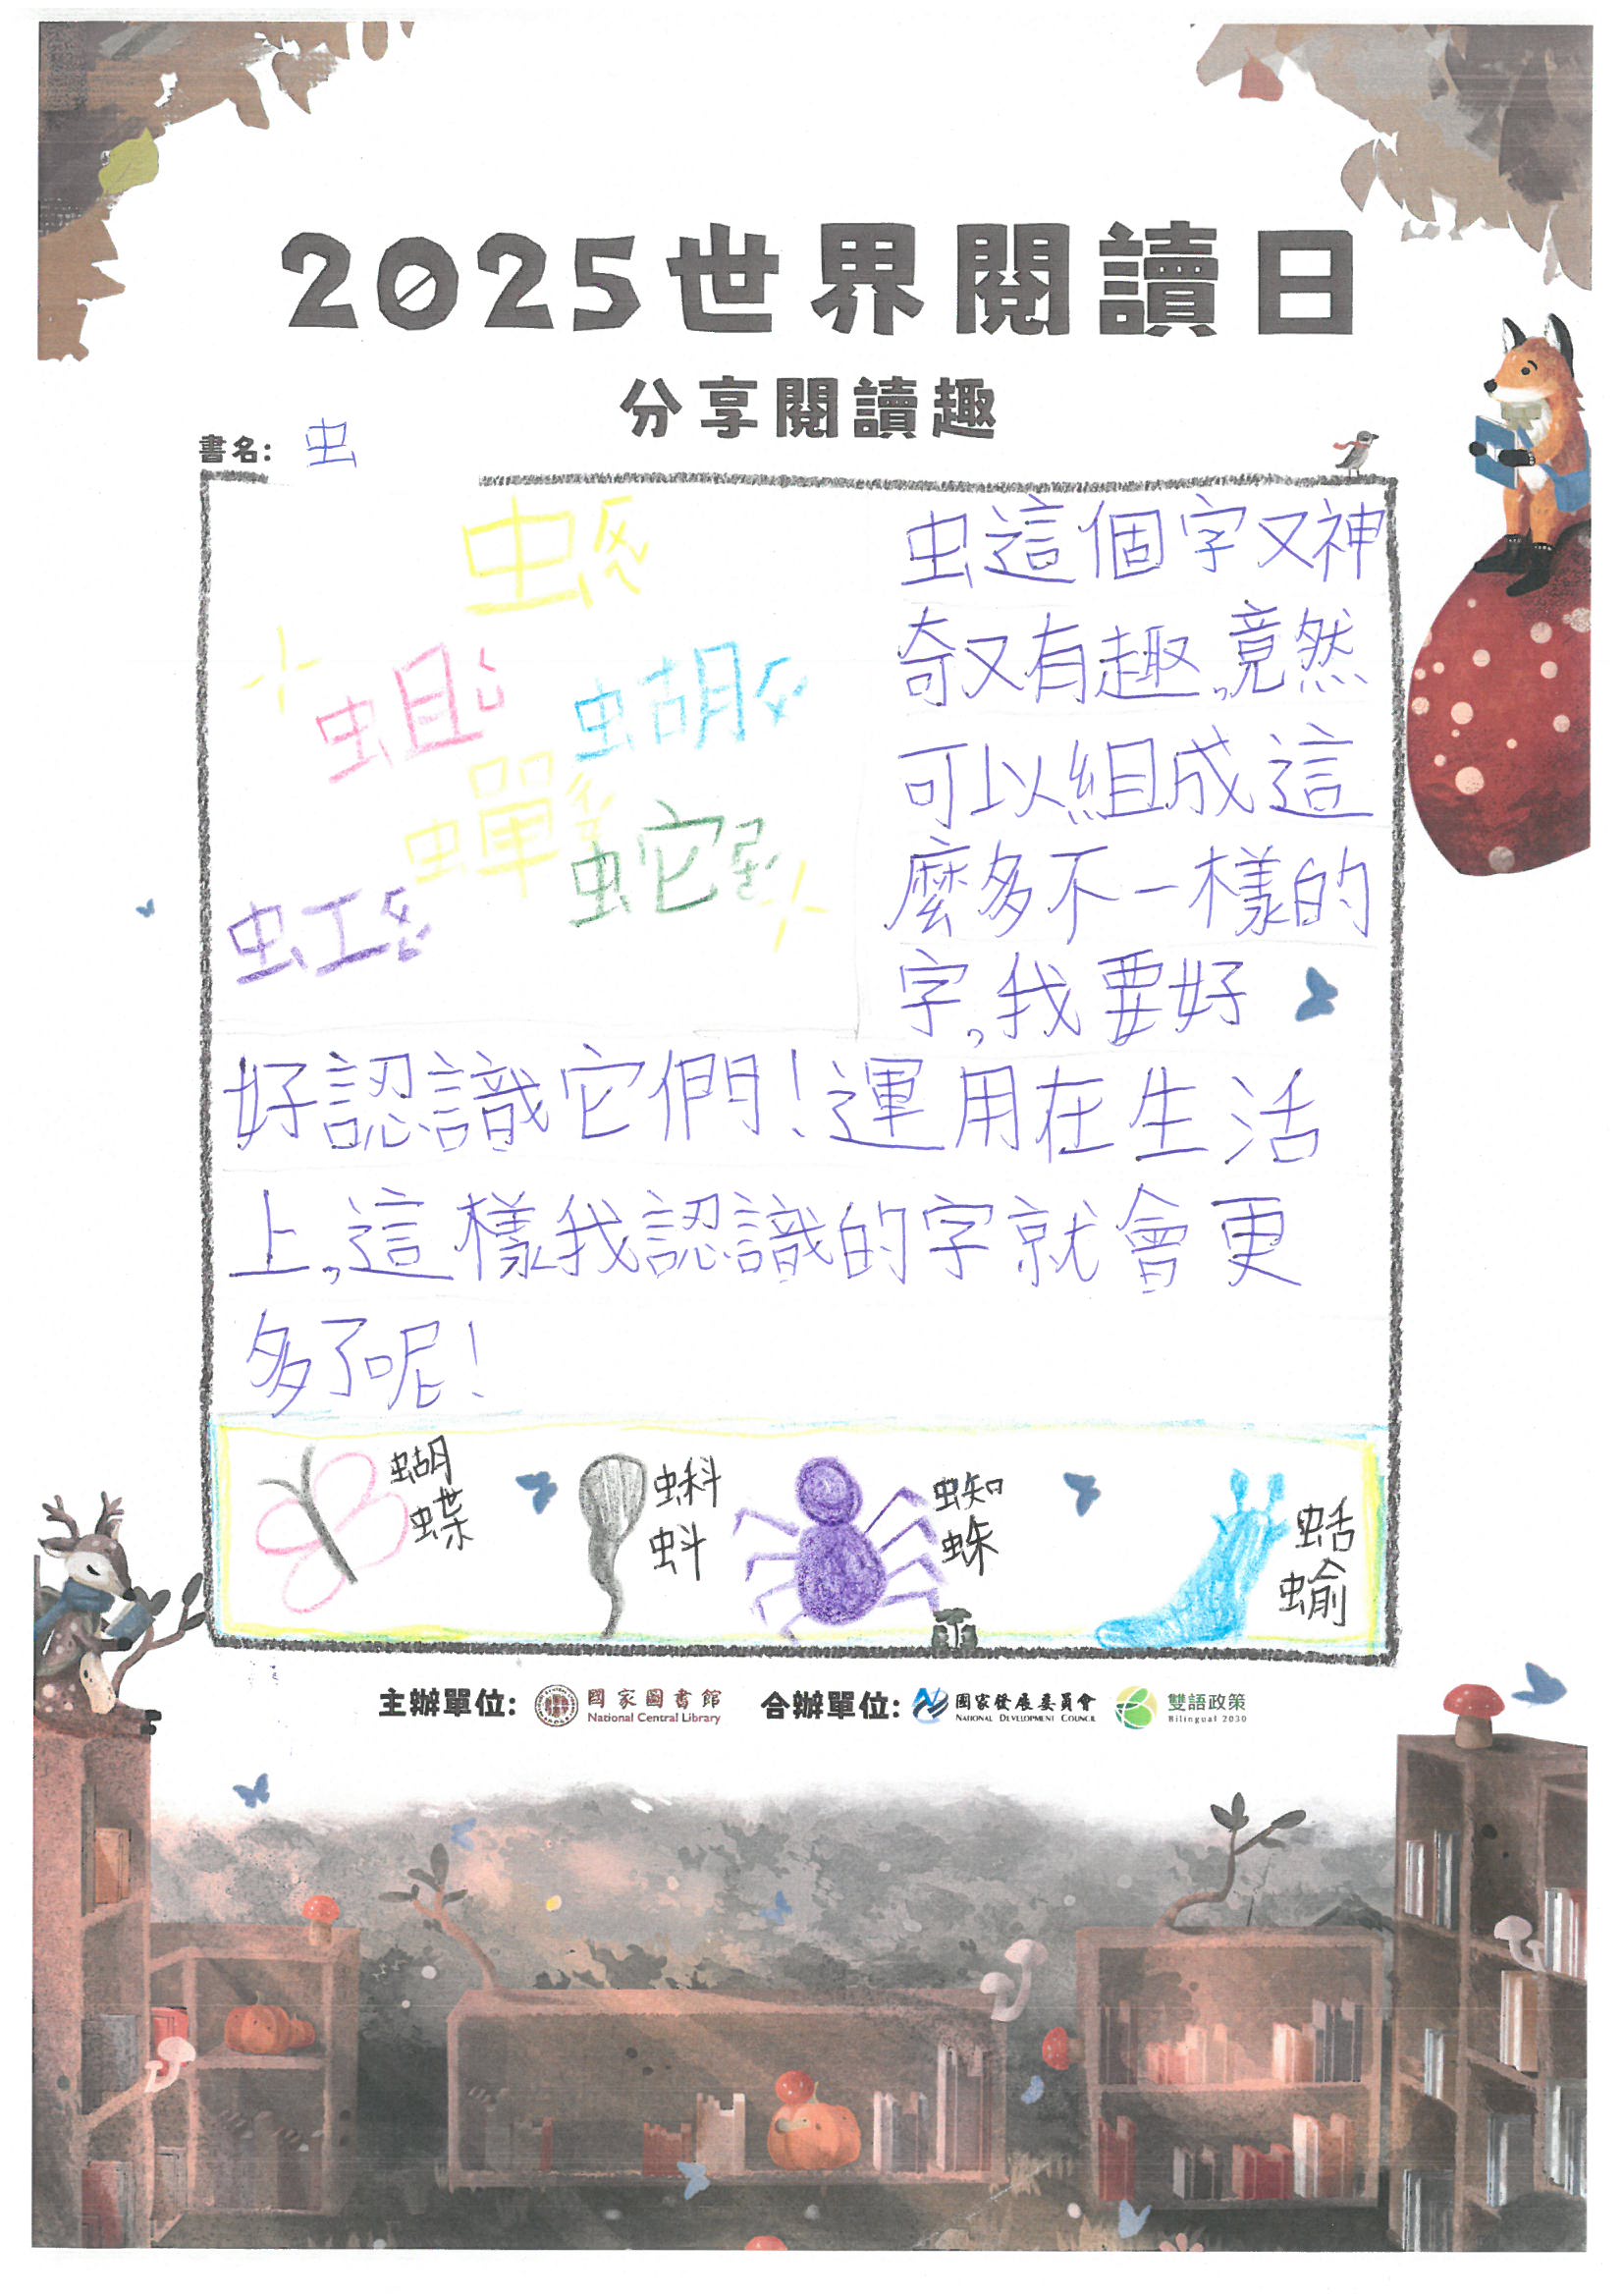 2025世界閱讀日
分享閱讀趣
書名: 虫
虫
蛆
蝴
蟬
蛇
虹
虫這個字又神
奇又有趣,竟然
可以組成這
麼多不一樣的
字,我要好
好認識它們!運用在生活
上,這樣我認識的字就會更
多了呢!
蝴
蝶
蝌
蚪
蜘
蛛
蛞
蝓
主辦單位: 國家圖書館 National Central Library 合辦單位: 國家發展委員會 NATIONAL DEVELOPMENT COUNCIL 雙語政策 Bilingual 2030